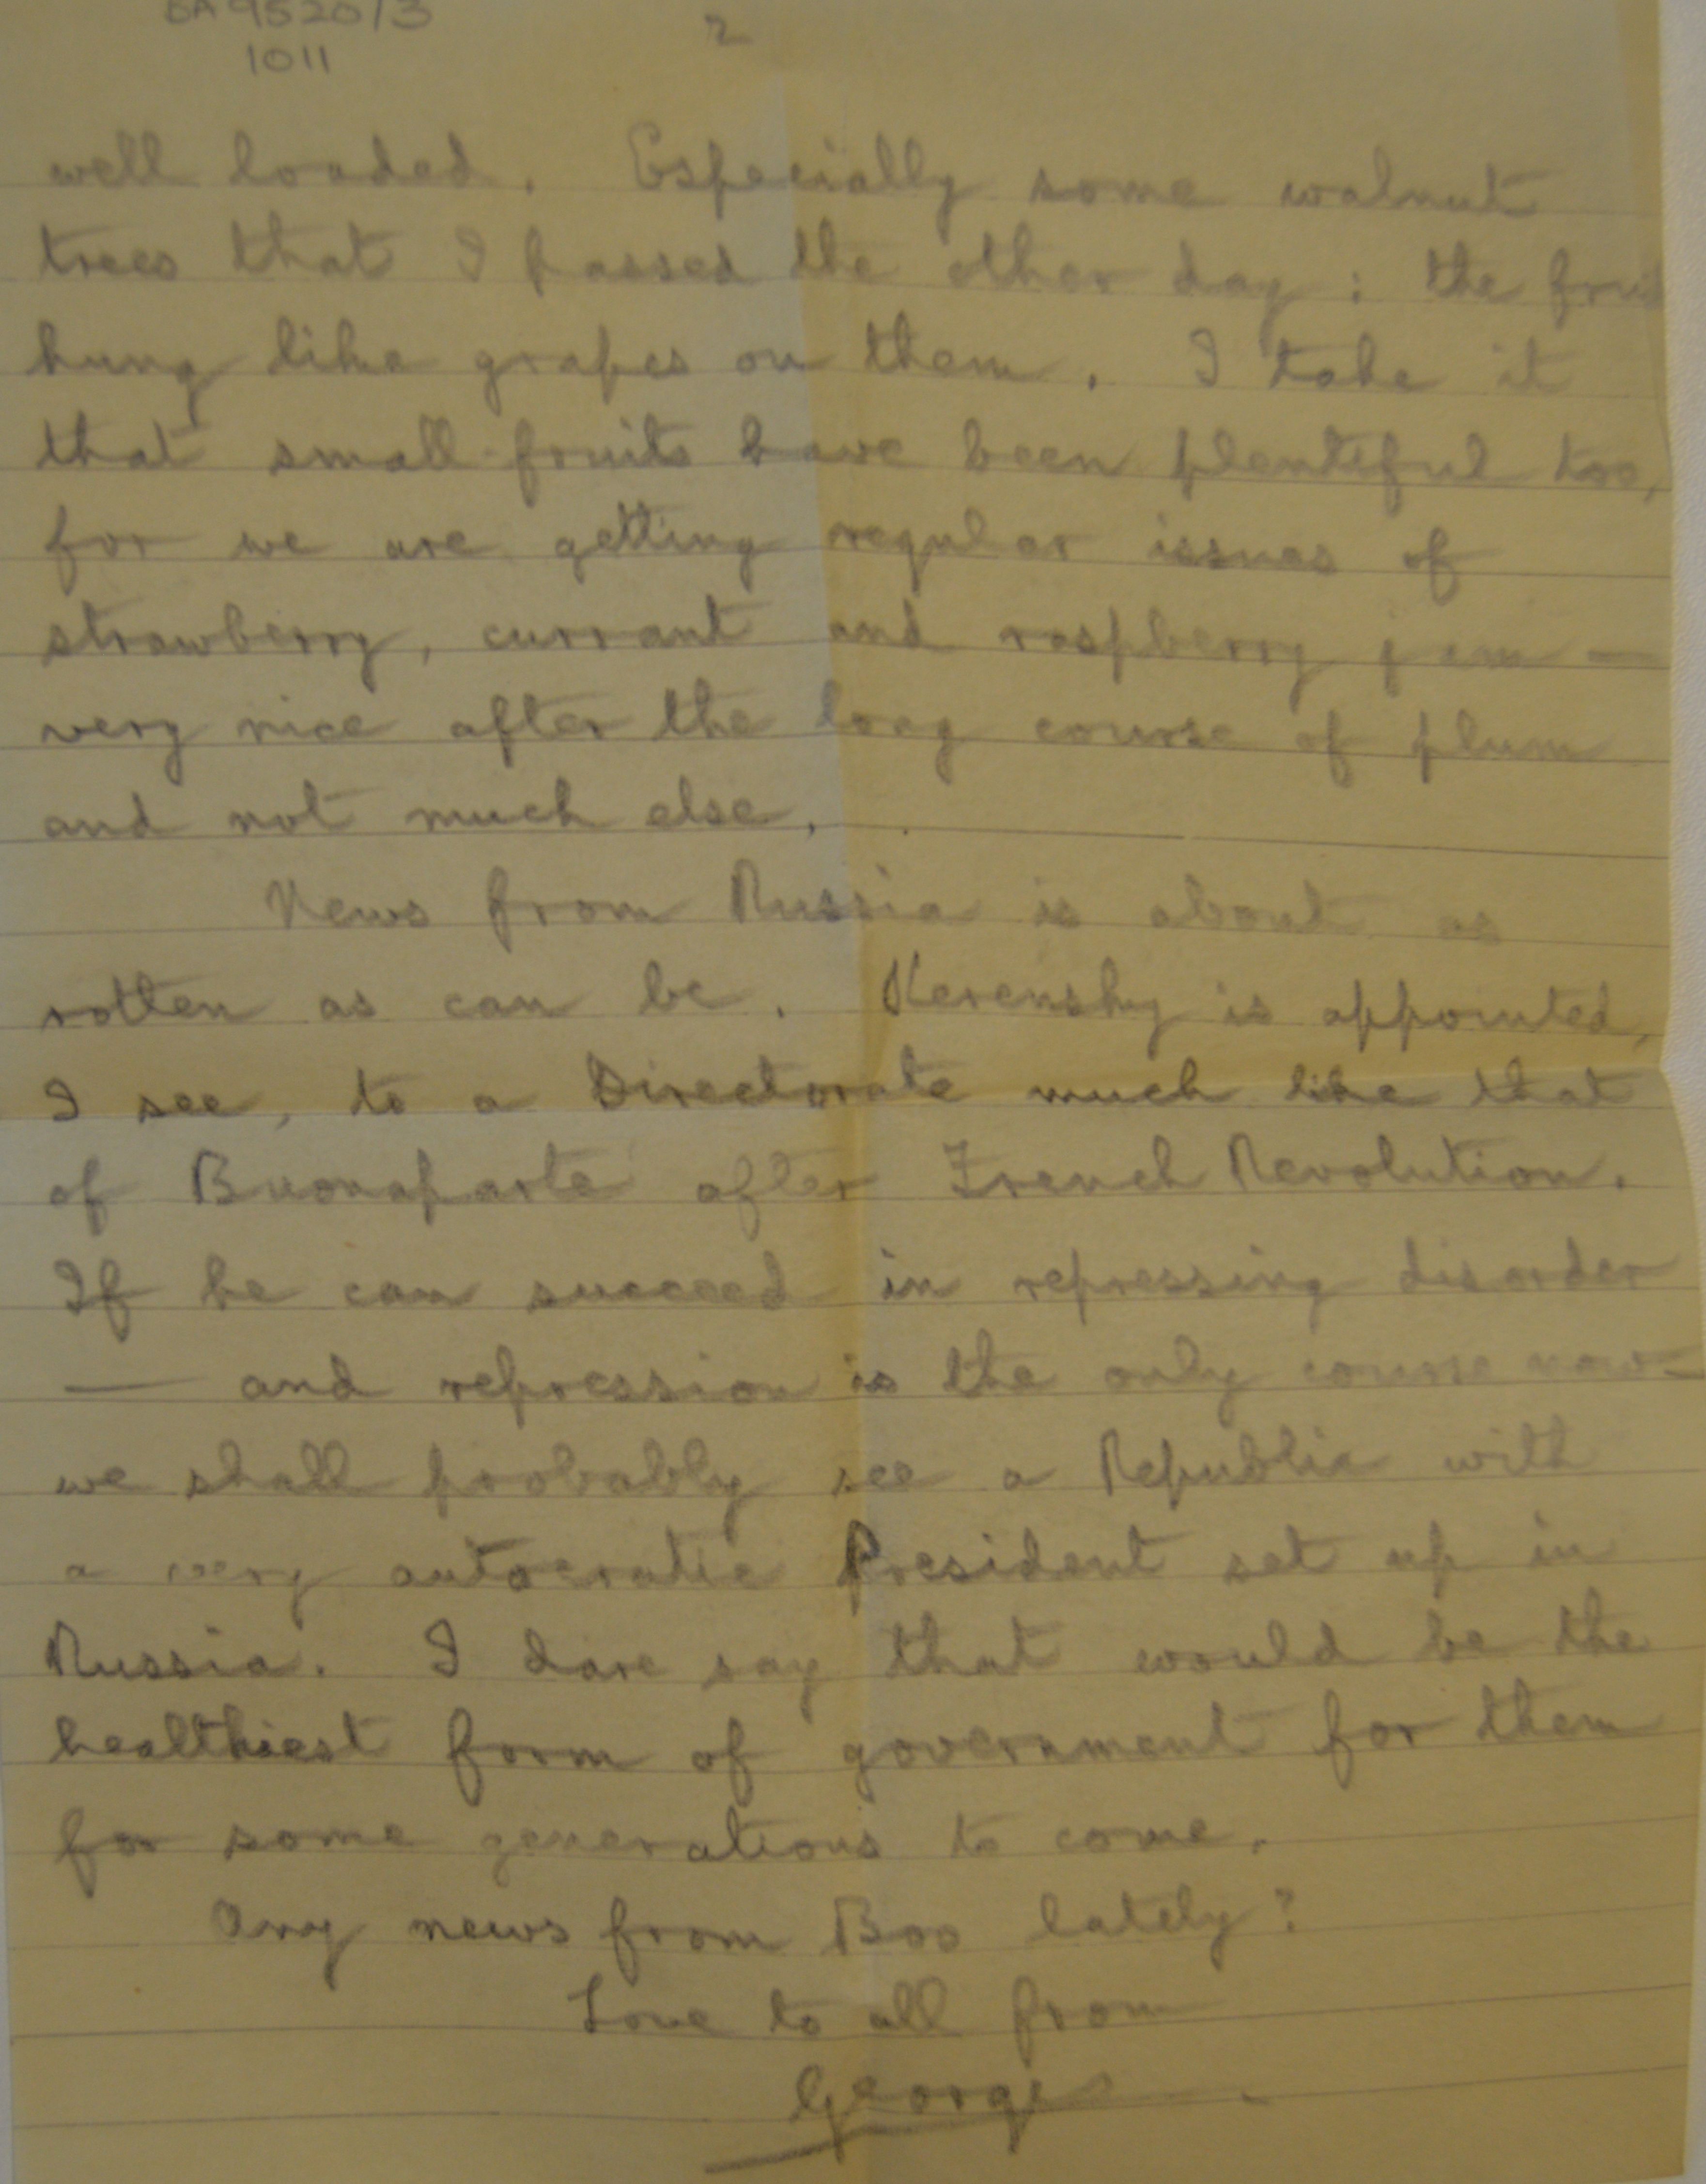 BA 9520/3
1011
2
well loaded. Especially some walnut
trees that I passed the other day: the fruit
hung like grapes on them. I take it
that small fruits have been plentiful too,
for we are getting regular issues of
strawberry, currant and raspberry jam —
very nice after the long course of plum
and not much else.
News from Russia is about as
rotten as can be. Kerensky is appointed,
I see, to a Directorate much like that
of Buonaparte after French Revolution.
If he can succeed in repressing disorder
— and repression is the only course now —
we shall probably see a Republic with
a very autocratic President set up in
Russia. I dare say that would be the
healthiest form of government for them
for some generations to come.
Any news from Boo lately?
Love to all from
George